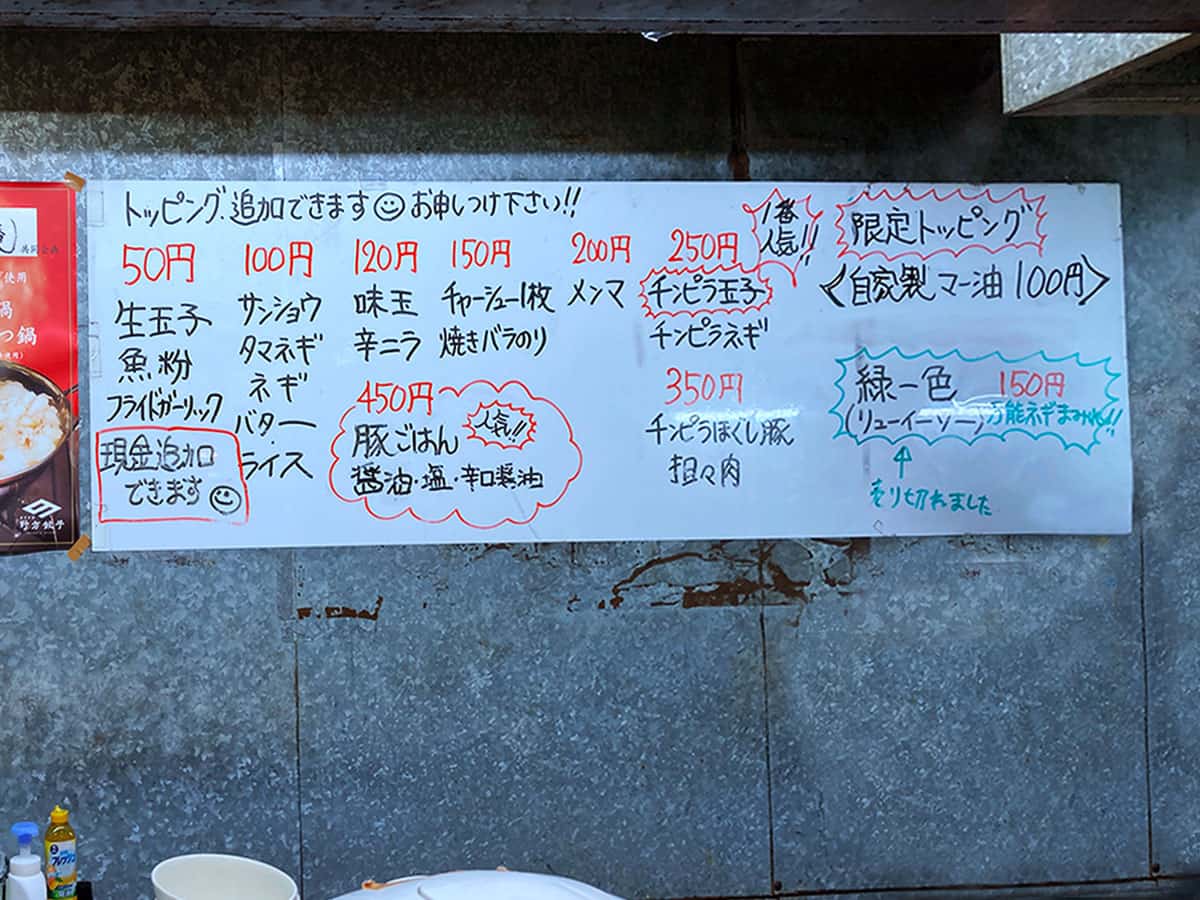 トッピング追加できます お申しつけ下さい!!
50円
生玉子
魚粉
フライドガーリック
現金追加
できます
100円
サンショウ
タマネギ
ネギ
バター
ライス
120円
味玉
辛ニラ
150円
チャーシュー1枚
焼きバラのり
200円
メンマ
450円
豚ごはん
人気!!
醤油・塩・辛口醤油
250円
1番
人気!!
チンピラ玉子
チンピラネギ
350円
チンピラほぐし豚
担々肉
限定トッピング
自家製マー油 100円
緑一色 150円
(リューイーソー)万能ネギまみれ!!
売り切れました
共同企画
使用
鍋
つ鍋
野方餃子